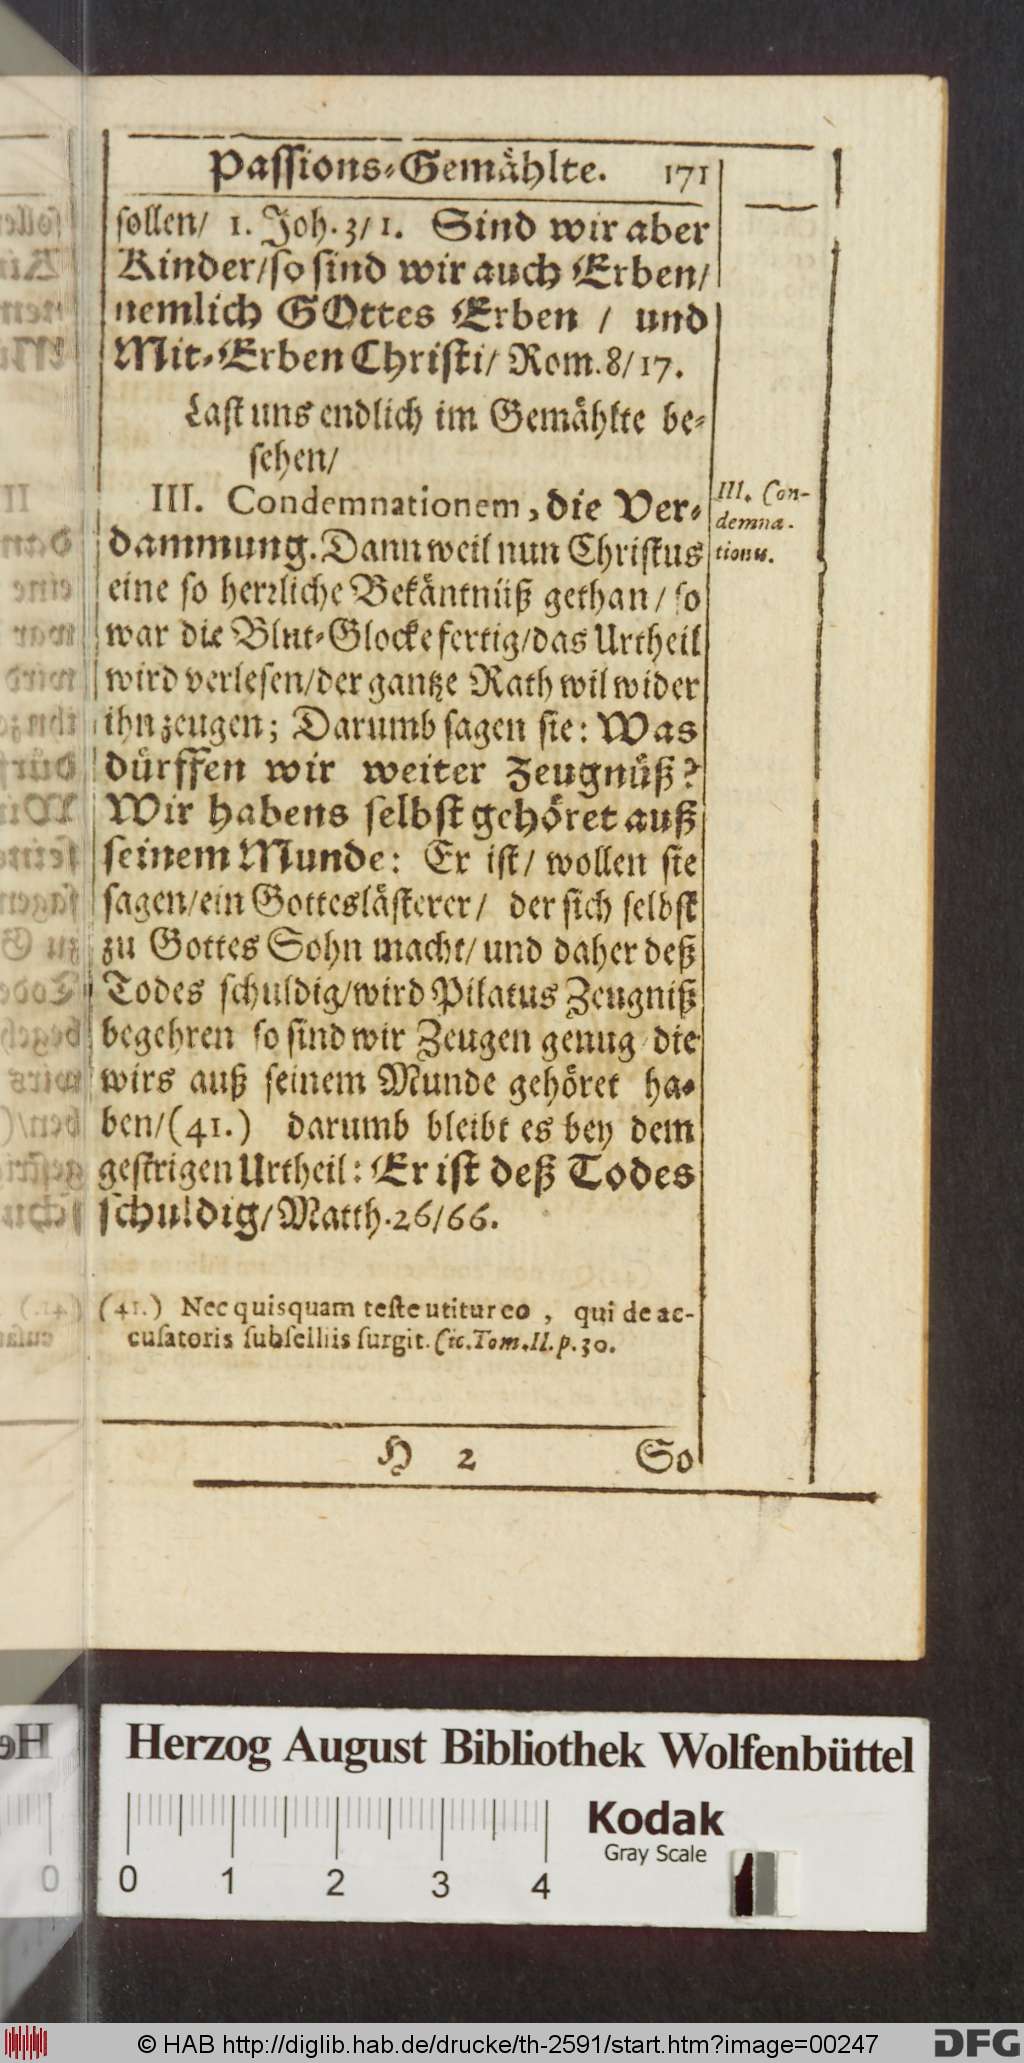 Passions-Gemählte. 171
sollen/ 1. Joh. 3/1. Sind wir aber
Kinder/so sind wir auch Erben/
nemlich GOttes Erben / und
Mit-Erben Christi/ Rom. 8/17.
Last uns endlich im Gemählte be-
sehen/
III. Condemnationem, die Ver-
dammung. Dann weil nun Christus
eine so herrliche Bekäntnüß gethan/ so
war die Blut-Glocke fertig/das Urtheil
wird verlesen/der gantze Rath wil wider
ihn zeugen; Darumb sagen sie: Was
dürffen wir weiter Zeugnüß?
Wir habens selbst gehöret auß
seinem Munde: Er ist/ wollen sie
sagen/ein Gotteslästerer/ der sich selbst
zu Gottes Sohn macht/ und daher deß
Todes schuldig/wird Pilatus Zeugniß
begehren so sind wir Zeugen genug die
wirs auß seinem Munde gehöret ha-
ben/(41.) darumb bleibt es bey dem
gestrigen Urtheil: Er ist deß Todes
schuldig/Matth. 26/66.
III. Con-
demna-
tionē.
(41.) Nec quisquam teste utitur eo, qui de ac-
cusatoris subselliis surgit. Cic. Tom. II. p. 30.
H 2 So
Herzog August Bibliothek Wolfenbüttel
Kodak
Gray Scale
0 1 2 3 4
© HAB http://diglib.hab.de/drucke/th-2591/start.htm?image=00247
DFG